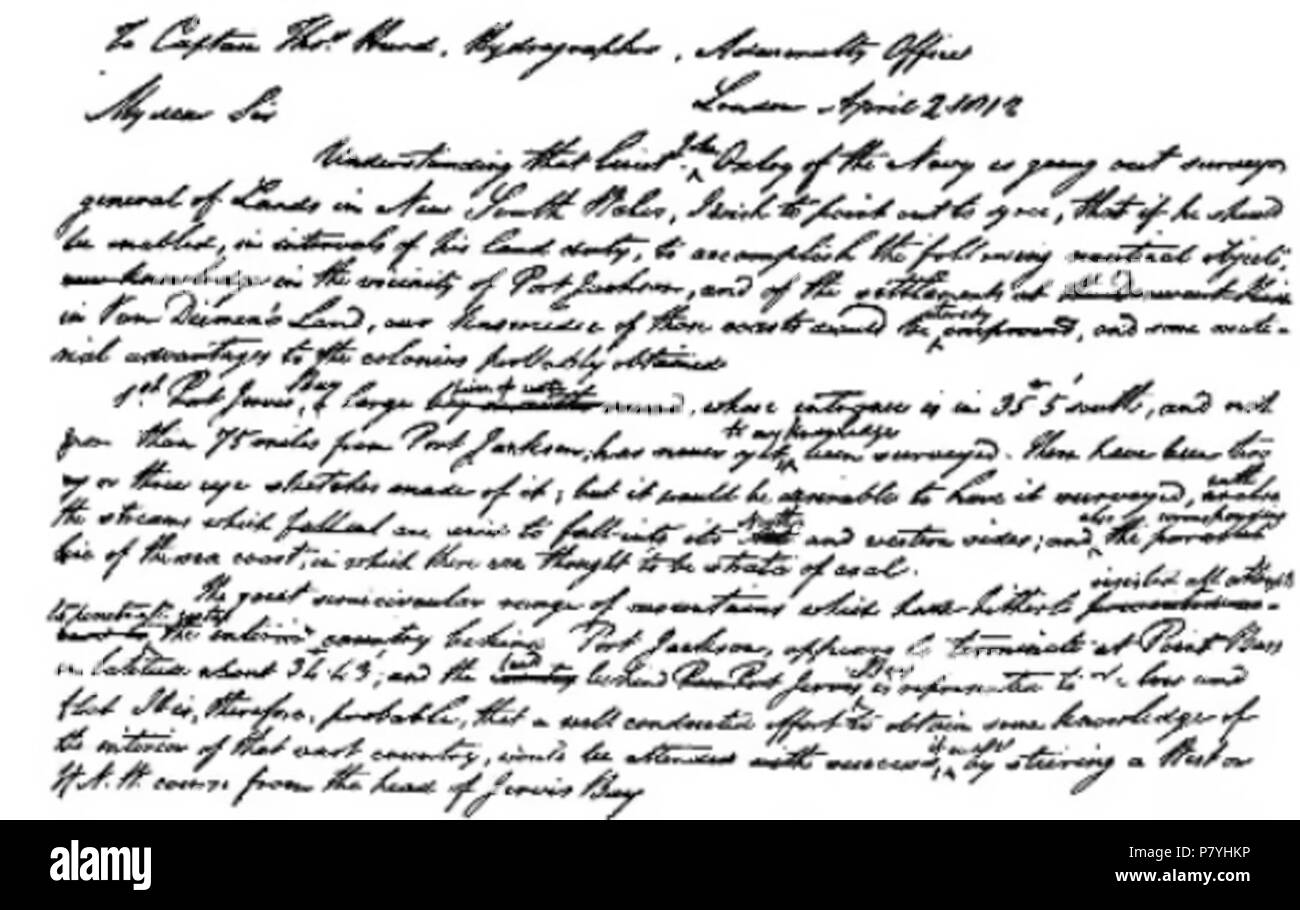 To Captain Thos. Hurd, Hydrographer, Admiralty Office
London April 2 1812
My dear Sir
Understanding that Lieut. Jn. Oxley of the Navy is going out surveyor
general of Lands in New South Wales, I wish to point out to you, that if he should
be enabled, in intervals of his land duty, to accomplish the following nautical objects,
in the vicinity of Port Jackson, and of the settlements at
in Van Diemen's Land, our knowledge of those coasts would be improved, and some mate-
rial advantages to the colonies probably obtained
1st. Port Jervis, Bay large whose entrance is in 35° 5' south, and not
more than 75 miles from Port Jackson, has never yet to my knowledge been surveyed. There have been two
or three eye sketches made of it; but it would be desirable to have it surveyed, with
the streams which are said to fall into its North and western sides; and also the corresponding
line of the sea coast, in which there are thought to be strata of coal.
The great semicircular range of mountains which have hitherto resisted all attempts
to penetrate into the interior country behind Port Jackson, appears to terminate at Point Bass
in latitude about 34° 43'; and the land behind Port Jervis Bay is represented to be low and
flat. It is, therefore, probable, that a well conducted effort to obtain some knowledge of
the interior of that vast country, would be attended with success, if made by steering a West or
W.N.W. course from the head of Jervis Bay
alamy
alamy stock photo
P7YHKP
www.alamy.com